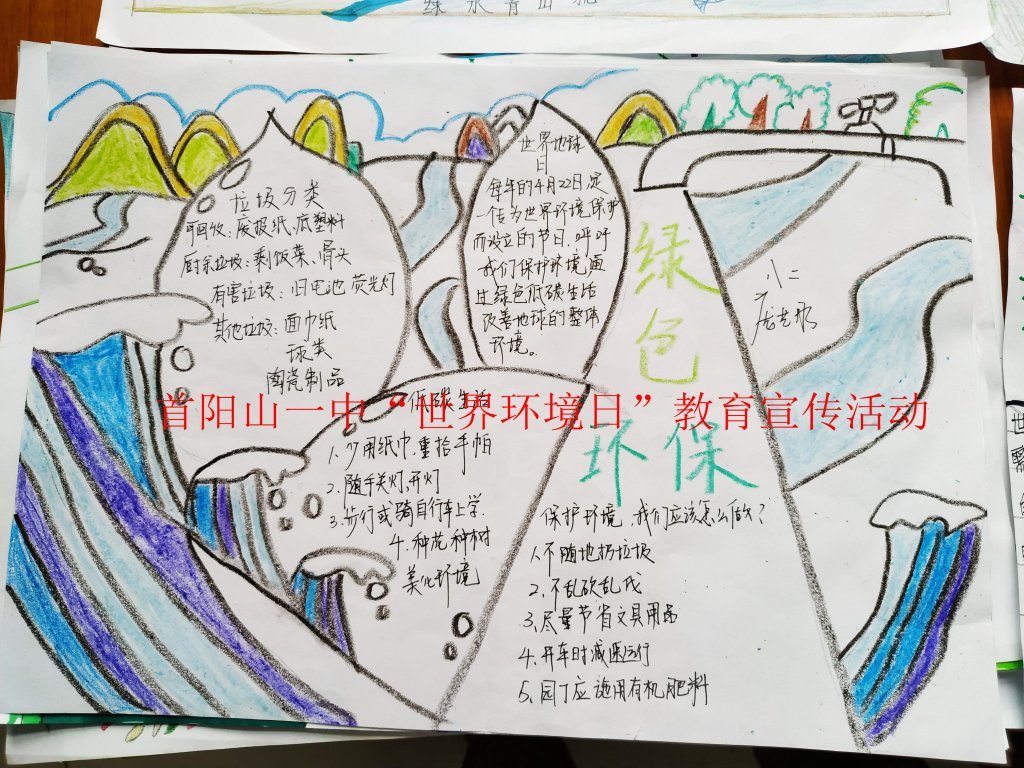 绿水青山
世界地球
日
每年的4月22日定
一传为世界环境保护
而设立的节日,呼吁
我们保护环境通
过绿色低碳生活
改善地球的整体
环境。
垃圾分类
可回收:废报纸、底塑料
厨余垃圾:剩饭菜、骨头
有害垃圾:旧电池 荧光灯
其他垃圾:面巾纸
陶瓷制品
绿色
环保
八二
首阳山一中“世界环境日”教育宣传活动
低碳生活
1.少用纸巾,重拾手帕
2.随手关灯,开灯
3.步行或骑自行车上学.
4.种花种树
美化环境
保护环境,我们应该怎么做?
1.不随地扔垃圾
2.不乱砍乱伐
3.尽量节省文具用品
4.开车时减速运行
5.园丁应施用有机肥料